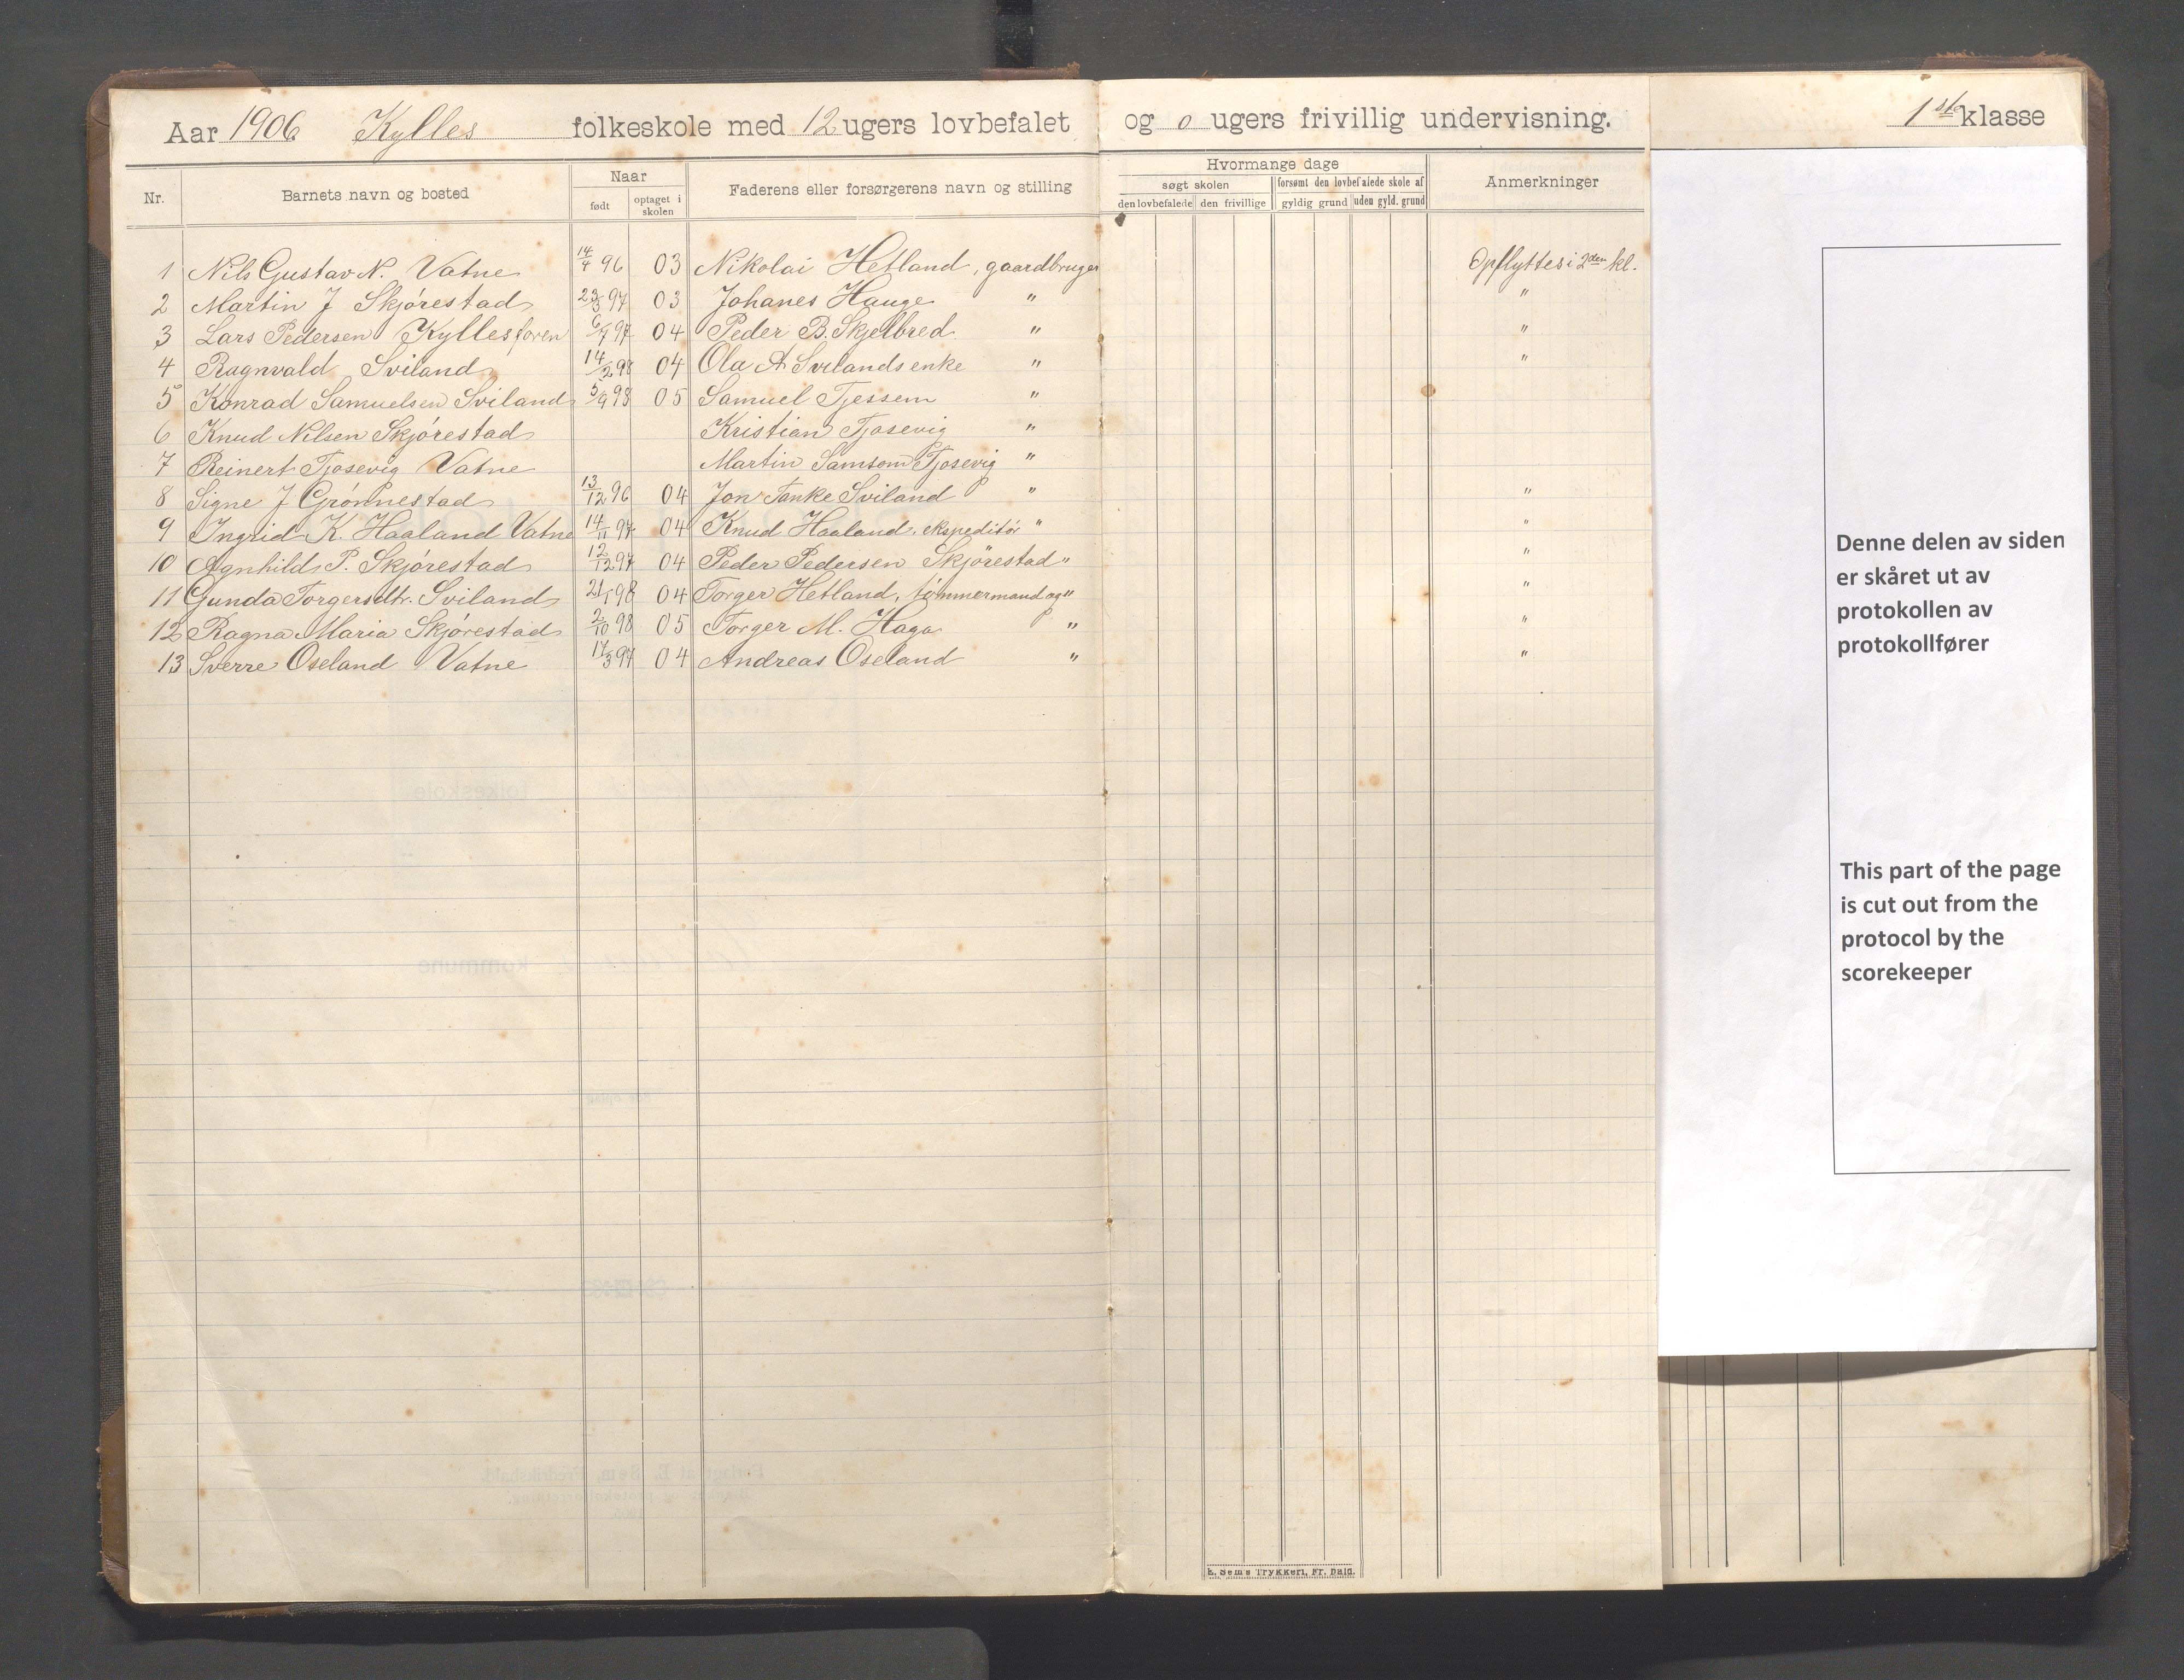 Aar 1906 Kylles folkeskole med 12 ugers lovbefalet og 0 ugers frivillig undervisning. 1ste klasse
Nr. Barnets navn og bosted Naar født optaget i skolen Faderens eller forsørgerens navn og stilling Hvormange dage søgt skolen den lovbefalede den frivillige forsømt den lovbefalede skole af gyldig grund uden gyld. grund Anmerkninger
1 Nils Gustav N. Vatne 14/4 96 03 Nikolai Hetland, gaardbruger Opflyttes i 2den kl.
2 Martin J Skjørestad 23/3 97 03 Johanes Hauge " "
3 Lars Pedersen Kyllesforen 6/7 97 04 Peder B. Skjelbred " "
4 Ragnvald Sviland 14/2 98 04 Ola A Svilands enke " "
5 Konrad Samuelsen Sviland 5/9 98 05 Samuel Tjessem "
6 Knud Nilsen Skjørestad Kristian Tjosevig "
7 Reinert Tjosevig Vatne Martin Samson Tjosevig "
8 Signe J Grønnestad 13/12 96 04 Jon Tanke Sviland " "
9 Ingrid K. Haaland Vatne 14/11 97 04 Knud Haaland, ekspeditør " "
10 Agnhild P. Skjørestad 12/12 97 04 Peder Pedersen Skjörestad " "
11 Gunda Torgersdtr. Sviland 21/1 98 04 Torger Hetland, tømmermand og " "
12 Ragna Maria Skjørestad 2/10 98 05 Torger M. Haga " "
13 Sverre Oseland Vatne 17/3 97 04 Andreas Oseland " "
Denne delen av siden
er skåret ut av
protokollen av
protokollfører
This part of the page
is cut out from the
protocol by the
scorekeeper
E. Sem's Trykkeri, Fr. hald.